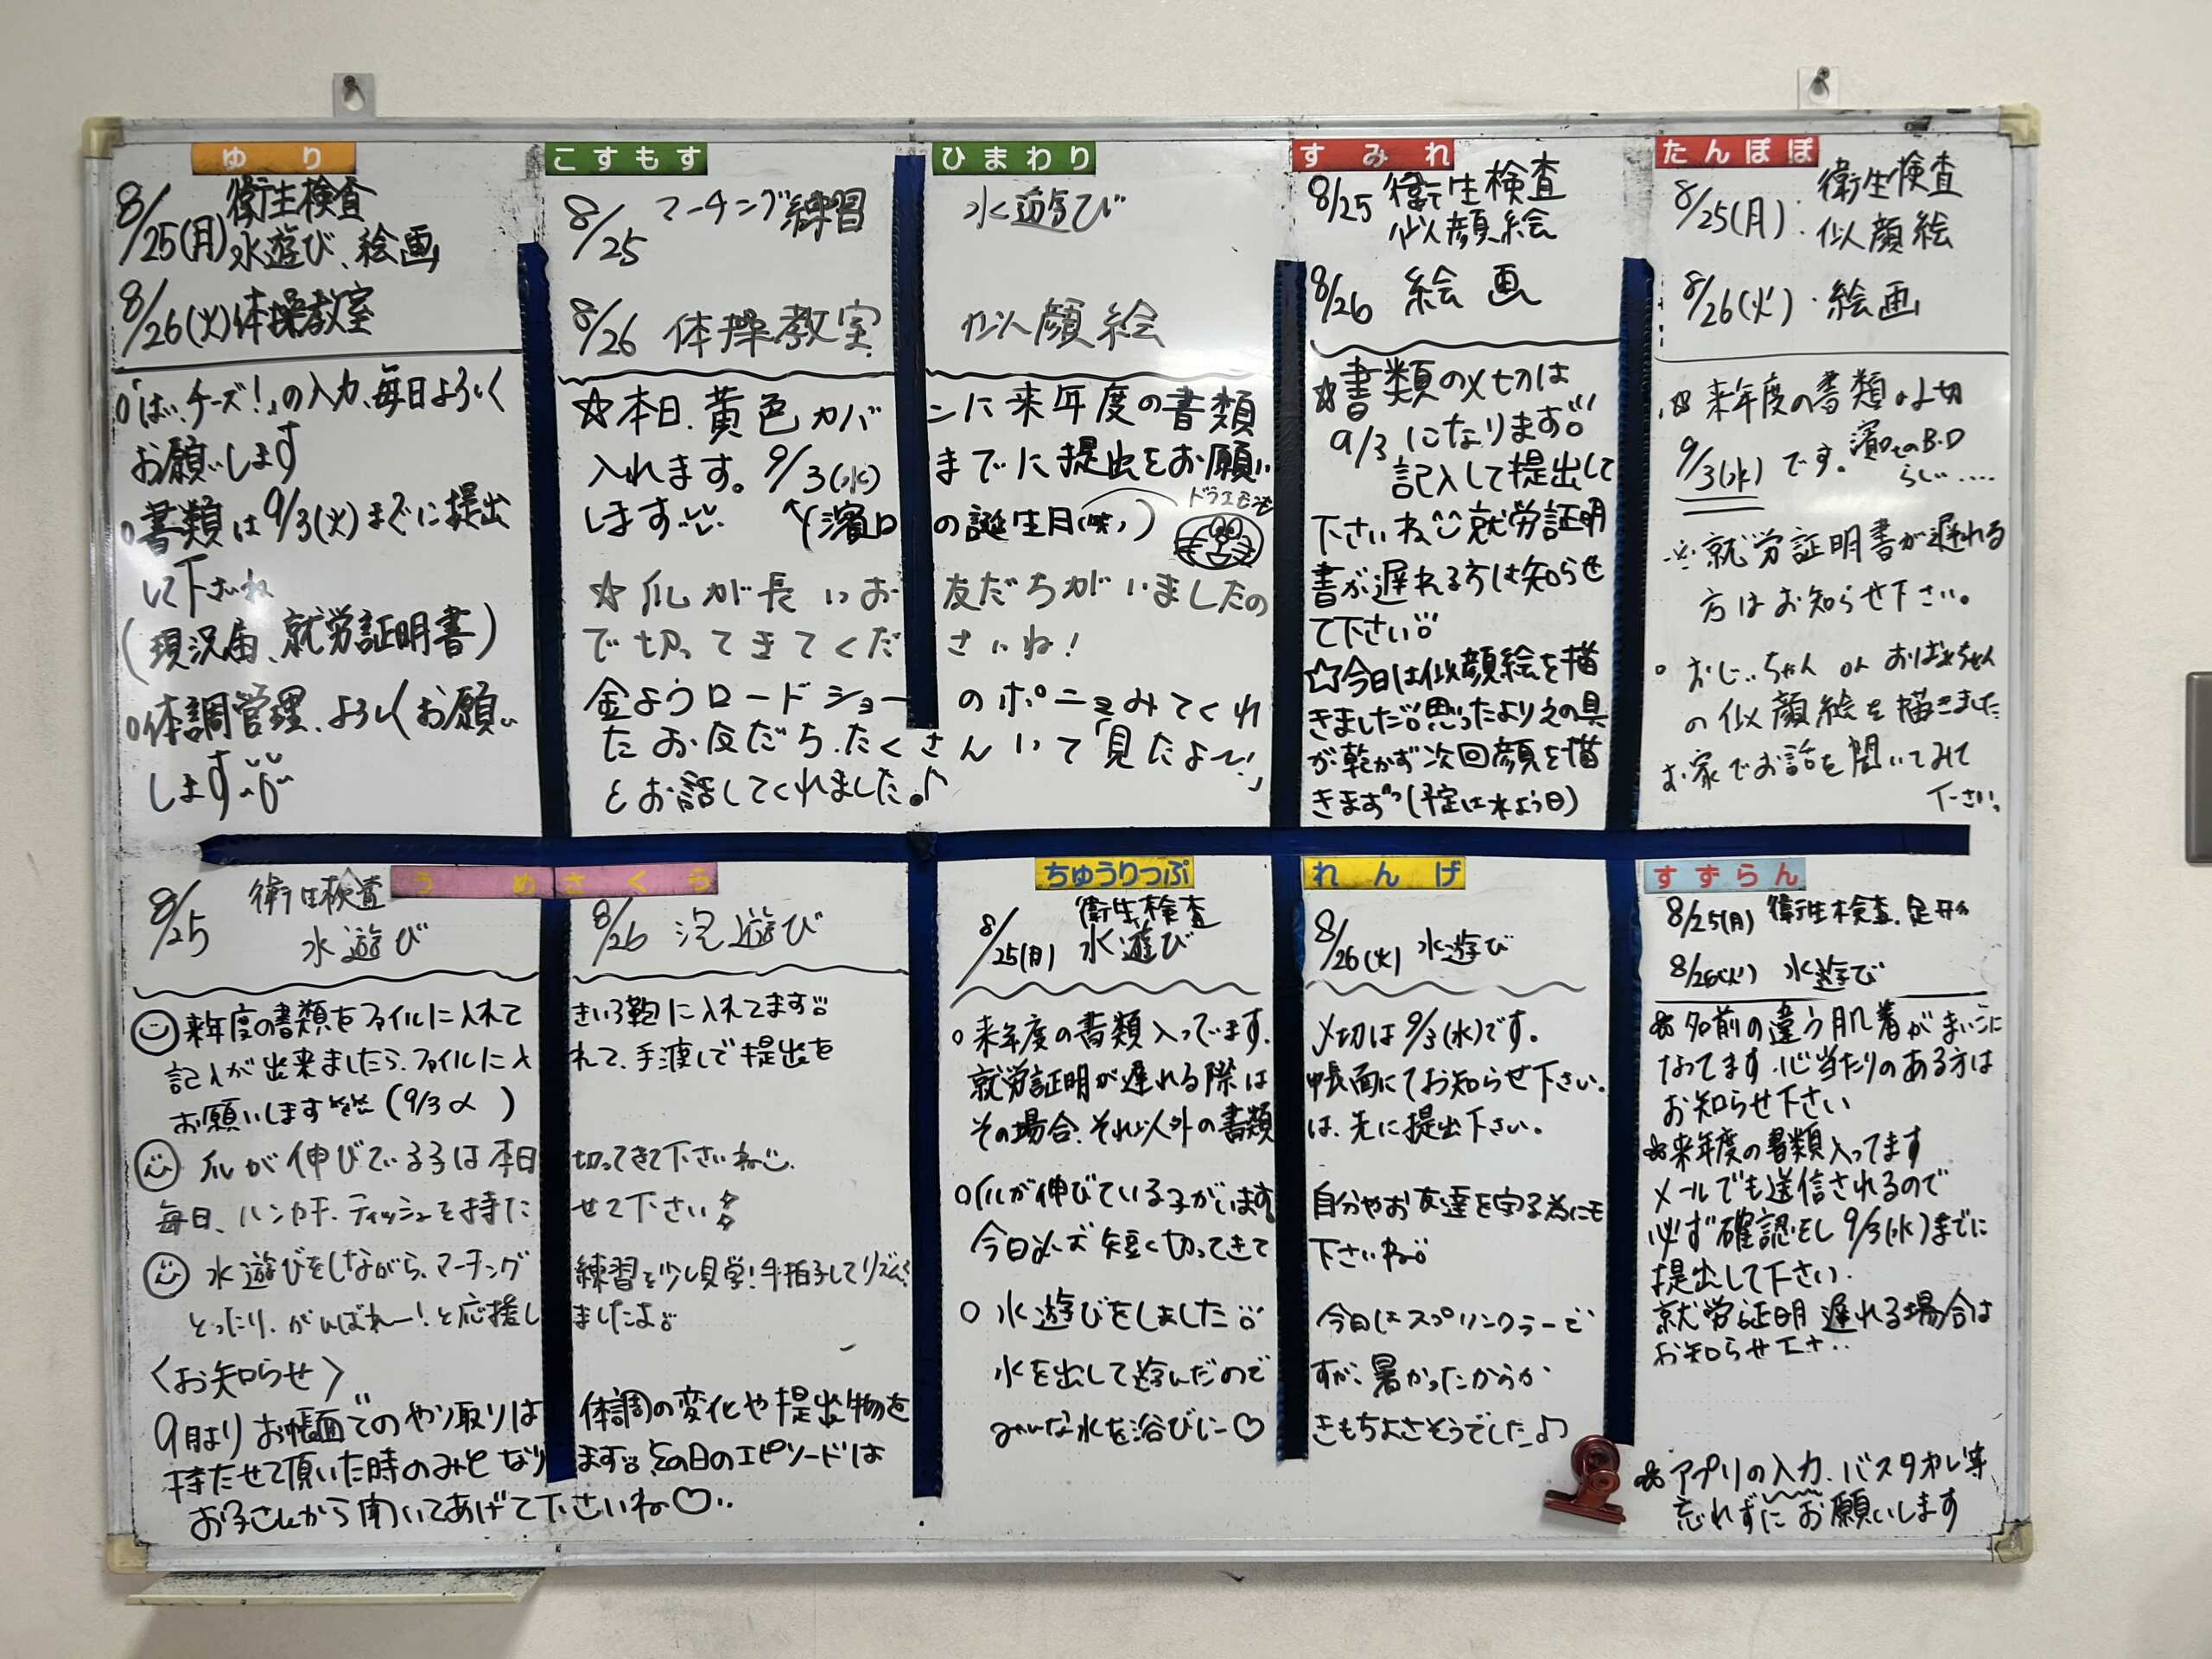 ゆり
8/25(月) 衛生検査
水遊び、絵画
8/26(火)体操教室
○「はい、チーズ!」の入力、毎日よろしく
お願いします
○書類は9/3(火)までに提出
して下さいね
(現況届、就労証明書)
○体調管理、よろしくお願い
します
こすもす ひまわり
8/25 マーチング練習 水遊び
8/26 体操教室 似顔絵
☆本日、黄色カバンに来年度の書類
入れます。9/3(水)までに提出をお願い
します ↖(濱口の誕生日(笑)) ドラえもん
☆爪が長いお友だちがいましたの
で切ってきてくださいね!
金ようロードショーのポニョみてくれ
たお友だち、たくさんいて「見たよ〜!」
とお話してくれました。♪
すみれ
8/25 衛生検査
似顔絵
8/26 絵画
☆書類の〆切は
9/3になります
記入して提出して
下さいね 就労証明
書が遅れる方は知らせ
て下さい
☆今日は似顔絵を描
きました 思ったよりえの具
が乾かず次回顔を描
きます(予定は水よう日)
たんぽぽ
8/25(月): 衛生検査
似顔絵
8/26(火)・絵画
☆来年度の書類の〆切
9/3(水)です。濱口のB.D
らしい....
※就労証明書が遅れる
方はお知らせ下さい。
○おじいちゃん or おばあちゃん
の似顔絵を描きました
お家でお話を聞いてみて
下さい。
うめ さくら
8/25 衛生検査
水遊び
8/26 泡遊び
来年度の書類をファイルに入れて きいろ鞄に入れてます
記入が出来ましたら、ファイルに入れて、手渡しで提出を
お願いします (9/3〆)
爪が伸びている子は本日切ってきて下さいね
毎日、ハンカチ、ティッシュを持たせて下さい
水遊びをしながら、マーチング練習を少し見学!手拍子してリズム
とったり、がんばれー!と応援しましたよ
〈お知らせ〉
9月よりお帳面でのやり取りは体調の変化や提出物を
持たせて頂いた時のみとなります その日のエピソードは
お子さんから聞いてあげて下さいね♡
ちゅうりっぷ れんげ
8/25(月) 衛生検査
水遊び
8/26(火) 水遊び
○来年度の書類入ってます。〆切は9/3(水)です。
就労証明が遅れる際は帳面にてお知らせ下さい。
その場合、それ以外の書類は、先に提出下さい。
○爪が伸びている子がいます 自分やお友達を守る為にも
今日必ず短く切ってきて下さいね
○水遊びをしました 今日はスプリンクラーで
水を出して遊んだのですが、暑かったからか
みんな水を浴びに♡ きもちよさそうでした♪
すずらん
8/25(月) 衛生検査、足形
8/26(火) 水遊び
名前の違う肌着がまいごに
なってます 心当たりのある方は
お知らせ下さい
来年度の書類入ってます
メールでも送信されるので
必ず確認をし 9/3(水)までに
提出して下さい。
就労証明 遅れる場合は
お知らせ下さい
アプリの入力、バスタオル等
忘れずにお願いします